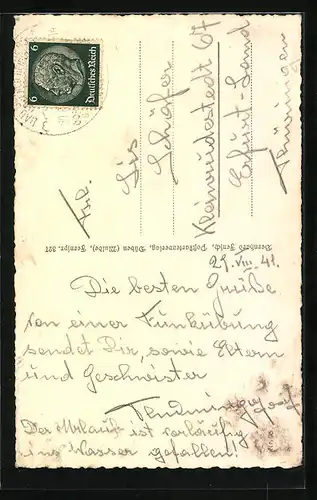 Die besten Grüße
von einer Funkübung
sendet Dir, sowie Eltern
und Geschwister
Der Urlaub ist vorläufig
ins Wasser gefallen!
29. VIII. 41.
Frl.
Lis
Schäfer
Kleinrudestedt 67
Erfurt-Land
Thüringen
Bernhard Jenich, Postkartenverlag, Düben (Mulde), Fernspr. 327
Deutsches Reich
6 6